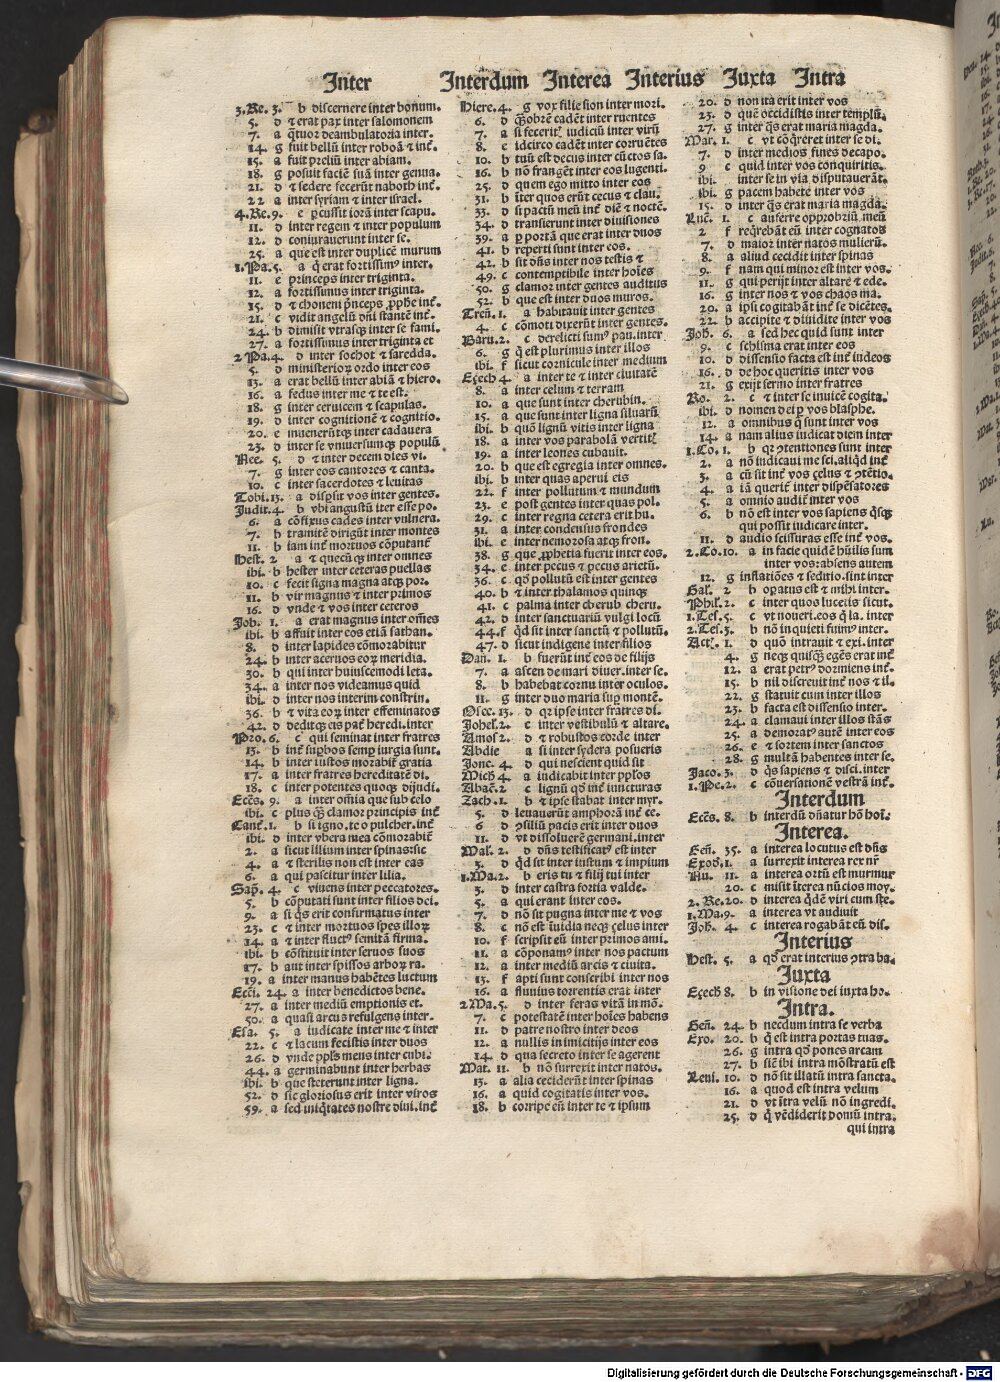 Inter Interdum Interea Interius Iuxta Intra
3. Re. 3. b discernere inter bonum.
5. d ⁊ erat pax inter salomonem
7. a q̄tuor deambulatoria inter.
14. g fuit bellū inter roboā ⁊ int̄.
15. a fuit preliū inter abiam.
18. g posuit faciē suā inter genua.
21. d ⁊ sedere fecerūt naboth int̄.
22 a inter syriam ⁊ inter israel.
4. Re. 9. e ꝑcussit iorā inter scapu.
11. d inter regem ⁊ inter populum
12. d coniurauerunt inter se.
25. a que est inter duplicē murum
1. Pa. 5. a q̄ erat fortissimꝰ inter.
11. e princeps inter triginta.
12. a fortissimus inter triginta.
15. d ⁊ choneni p̄nceps ꝓphe int̄.
21. c vidit angelū dn̄i stantē int̄.
24. b dimisit vtrasqꝫ inter se fami.
27. a fortissimus inter triginta et
2 Pa. 4. d inter sochot ⁊ saredda.
5. d ministerioꝝ ordo inter eos
13. a erat bellū inter abiā ⁊ hiero.
16. a fedus inter me ⁊ te est.
18. g inter ceruicem ⁊ scapulas.
19. d inter cognitionē ⁊ cognitio.
20. e inuenerūtqꝫ inter cadauera
23. d inter se vniuersumqꝫ populū
Nee. 5. d ⁊ inter decem dies vi.
7. g inter eos cantores ⁊ canta.
10. c inter sacerdotes ⁊ leuitas
Tobi. 13. a disꝑsit vos inter gentes.
Judit. 4. b vbi angustū iter esse po.
6. a cōfixus cades inter vulnera.
7. b tramitē dirigūt inter montes
11. b iam int̄ mortuos cōputant̄
Hest. 2 a ⁊ quecūqꝫ inter omnes
ibi. b hester inter ceteras puellas
10. c fecit signa magna atqꝫ por.
11. b vir magnus ⁊ inter primos
16. d vnde ⁊ vos inter ceteros
Job. 1. a erat magnus inter om̄es
ibi. b affuit inter eos etiā sathan.
8. d inter lapides cōmorabitur
24. b inter aceruos eoꝝ meridia.
30. b qui inter huiuscemodi leta.
34. a inter nos videamus quid
ibi. d inter nos interim constrin.
36. b ⁊ vita eoꝝ inter effeminatos
42. d deditqꝫ eis pat̄ heredi. inter
Pro. 6. c qui seminat inter fratres
13. b int̄ suꝑbos semꝑ iurgia sunt.
14. b inter iustos morabit̄ gratia
17. a inter fratres hereditatē di.
18. c inter potentes quoqꝫ dijudi.
Ecc̄s. 9. a inter om̄ia que sub celo
ibi. c plus q̄ꝫ clamor principis int̄
Cant̄. 1. b si igno. te o pulcher. int̄
ibi. d inter vbera mea cōmorabit̄
2. a sicut lilium inter spinas: sic
4. a ⁊ sterilis non est inter eas
6. a qui pascitur inter lilia.
Sap̄. 4. c viuens inter peccatores.
5. b cōputati sunt inter filios dei.
9. a si q̄s erit confirmatus inter
23. c ⁊ inter mortuos spes illoꝝ
14. a ⁊ inter fluctꝰ semitā firma.
ibi. b cōstituit inter seruos suos
17. b aut inter spissos arboꝝ ra.
19. a inter manus habētes luctum
Ecci. 24. a inter benedictos bene.
27. a inter mediū emptionis et.
50. a quasi arcus refulgens inter.
Esa. 5. a iudicate inter me ⁊ inter
22. c ⁊ lacum fecistis inter duos
26. d vnde ppl̄s meus inter cubi.
44. a germinabunt inter herbas
ibi. b que steterunt inter ligna.
52. d sic gloriosus erit inter viros
59. a sed iniq̄tates nostre diui. int̄
Hiere. 4. g vox filie sion inter mori.
6. d q̄obrē cadēt inter ruentes
7. a si fecerit̄ iudiciū inter virū
8. e idcirco cadēt inter corruētes
10. b tuū est decus inter cūctos sa.
16. b nō frangēt inter eos lugenti.
25. d quem ego mitto inter eos
31. b īter quos erūt cecus ⁊ clau.
33. d si pactū meū int̄ diē ⁊ noctē.
34. d transierunt inter diuisiones
39. a ꝑ portā que erat inter duos
41. b reperti sunt inter eos.
42. b sit dn̄s inter nos testis ⁊
49. c contemptibile inter hoīes
50. g clamor inter gentes auditus
52. b que est inter duos muros.
Tren̄. 1. a habitauit inter gentes
4. c cōmoti dixerūt inter gentes.
Baru. 2. c derelicti sumꝰ pau. inter
6. g q̄ est plurimus inter illos
ibi. f sicut cornicule inter medium
Eçech 4. a inter te ⁊ inter ciuitatē
8. a inter celum ⁊ terram
10. a que sunt inter cherubin.
15. a que sunt inter ligna siluarū
ibi. b quō lignū vitis inter ligna
18. a inter vos parabolā vertit̄
19. a inter leones cubauit.
20. b que est egregia inter omnes.
ibi. b inter quas aperui eis
22. f inter pollutum ⁊ mundum
23. e post gentes inter quas pol.
29. c inter regna cetera erit hu.
31. a inter condensas frondes
ibi. e inter nemorosa atqꝫ fron.
38. g que ꝓphetia fuerit inter eos.
34. e inter pecus ⁊ pecus arietū.
36. c qꝺ pollutū est inter gentes
40. b ⁊ inter thalamos quinqꝫ
41. c palma inter cherub cheru.
42. d inter sanctuariū vulgi locū
44. f qꝺ sit inter sanctū ⁊ pollutū.
47. d sicut indigene inter filios
Dan. 1. b fuerūt int̄ eos de filijs
7. a ascen de mari diuer. inter se.
8. b habebat cornu inter oculos.
11. g inter duo maria suꝑ montē.
Osee. 13. d qꝛ ipse inter fratres di.
Johel. 2. c inter vestibulū ⁊ altare.
Amos 2. d ⁊ robustos corde inter
Abdie a si inter sydera posueris
Jone. 4. d qui nescient quid sit
Mich̄ 4. a iudicabit inter ppl̄os
Abac̄. 2 c lignū qꝺ int̄ iuncturas
Zach. 1. b ⁊ ipse stabat inter myr.
5. d leuauerūt amphorā int̄ ce.
6 d ꝯsiliū pacis erit inter duos
11. d vt dissoluerē germani. inter
Mal. 2. d dn̄s testificatꝰ est inter
3. d qꝺ sit inter iustum ⁊ impium
1. Ma. 2. b eris tu ⁊ filij tui inter
3. d inter castra fortia valde.
5. a qui erant inter eos.
7. d nō sit pugna inter me ⁊ vos
8. c nō est īuidia neqꝫ çelus inter
10. f scripsit eū inter primos ami.
11. a cōponamꝰ inter nos pactum
12. a inter mediū arcis ⁊ ciuita.
13. f apti sunt conscribi inter nos
16. a fluuius torrentis erat inter
2 Ma. 5. d inter feras vitā in mō.
7. c potestatē inter hoīes habens
11. d patre nostro inter deos
12. a nullis inimicitijs inter eos
14. d qua secreto inter se agerent
Mat. 11. b nō surrexit inter natos.
13. a alia ceciderūt inter spinas
16. a quid cogitatis inter vos.
18. b corripe eū inter te ⁊ ipsum
20. d non ita erit inter vos
23. d quē occidistis inter templū.
27. g inter q̄s erat maria magda.
Mar. 1. c vt cōq̄reret inter se di.
7. d inter medios fines decapo.
9 c quid inter vos conquiritis.
ibi. inter se in via disputauerāt.
ibi. g pacem habete inter vos
15. d inter q̄s erat maria magda.
Luc̄. 1. c auferre opprobriū meū
2 f req̄rebāt eū inter cognatos
7. d maior inter natos mulierū.
8. a aliud cecidit inter spinas
9. f nam qui minor est inter vos.
11. g qui perijt inter altare ⁊ ede.
16. g inter nos ⁊ vos chaos ma.
20. a ipsi cogitabāt int̄ se dicētes.
22. b accipite ⁊ diuidite inter vos
Joh. 6. a sed hec quid sunt inter
9. c schisma erat inter eos
10. d dissensio facta est int̄ iudeos
16. d de hoc queritis inter vos
21. g exijt sermo inter fratres
Ro. 2. c ⁊ inter se inuicē cogita.
ibi. d nomen dei ꝑ vos blasphe.
12. a omnibus q̄ sunt inter vos
14. a nam alius iudicat diem inter
1. Co. 1. b qꝛ ꝯtentiones sunt inter
2. a nō indicaui me sci. aliqd int̄
3. a cū sit int̄ vos çelus ⁊ ꝯtētio.
4. a iā querit̄ inter dispēsatores
5. a omnio audit̄ inter vos
6. b nō est inter vos sapiens q̄sqꝫ
qui possit iudicare inter.
11. d audio scissuras esse int̄ vos.
2. Co. 10. a in facie quidē hūilis sum
inter vos: absens autem
12. g inflatiōes ⁊ seditio. sint inter
Gal. 2 b oꝑatus est ⁊ mihi inter.
Phil̄. 2. c inter quos lucetis sicut.
1. Tes. 5. c vt noueri. eos q̄ la. inter
2. Tes. 3. b nō inquieti fuimꝰ inter.
Act̄. 1. d quō intrauit ⁊ exi. inter
4. g neqꝫ quisq̄ꝫ egēs erat int̄
12. a erat petrꝰ dormiens int̄.
15. b nil discreuit int̄ nos ⁊ il.
22. g statuit eum inter illos
23. b facta est dissensio inter.
24. a clamaui inter illos stās
25. a demoratꝰ autē inter eos
26. e ⁊ sortem inter sanctos
28. g multā habentes inter se.
Jaco. 3. d q̄s sapiens ⁊ disci. inter
1. Pe. 2. c cōuersationē vestrā int̄.
Interdum
Ecc̄s. 8. b interdū dn̄atur hō hoī.
Interea.
Gen̄. 35. a interea locutus est dn̄s
Exod. 1. a surrexit interea rex nr̄
Nu. 11. a interea ortū est murmur
20. c misit īterea nūcios moy.
2. Re. 20. d interea q̄dē viri cum ste.
1. Ma. 9. a interea vt audiuit
Joh. 4. c interea rogabāt eū dis.
Interius
Hest. 5. a qꝺ erat interius ꝯtra ba.
Iuxta
Eçech 8. b in visione dei iuxta ho.
Intra.
Gen̄. 24. b necdum intra se verba
Exo. 20. b q̄ est intra portas tuas.
26. g intra qꝺ pones arcam
27. b siē ibi intra mōstratū est
Leui. 10. d nō sit illatū intra sancta.
16. a quod est intra velum
21. d vt ītra velū nō ingredi.
25. d q̄ vēdiderit domū intra.
qui intra
Digitalisierung gefördert durch die Deutsche Forschungsgemeinschaft - DFG